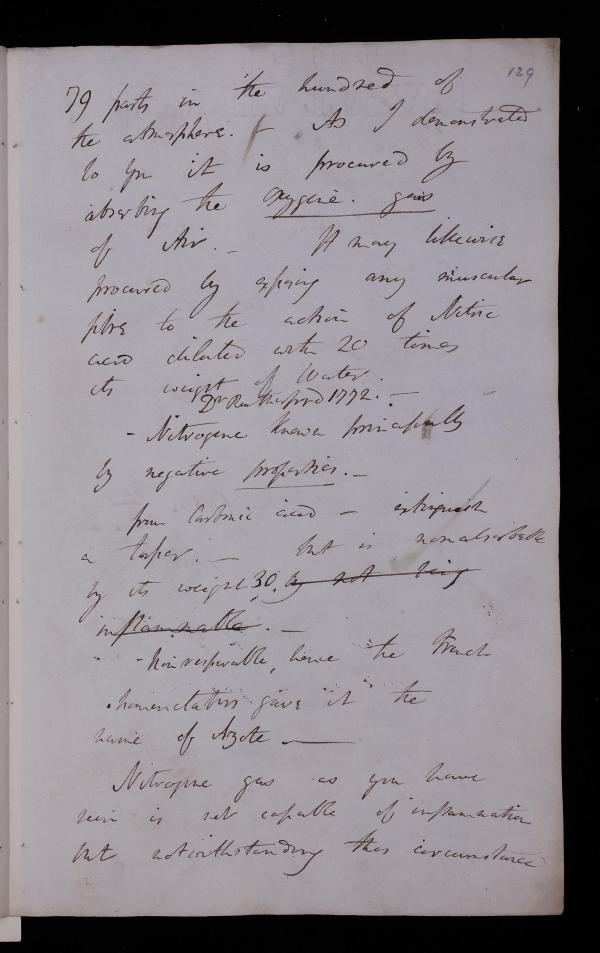 129
79 parts in the hundred of
the atmosphere. - As I demonstrated
to you it is procured by
absorbing the Oxygene. gas
of Air. _ It may likewise
procured by exposing any muscular
fibre to the action of Nitric
acid diluted with 20 times
its weight of Water.
Dr Rutherford 1772. -
- Nitrogene known principally
by negative properties. _
from Carbonic acid - extinguish
a taper. _ but is nonabsorbable
by its weight 30. by not being
inflammable. _
- Non respirable, hence the French
nomenclators gave it the
name of Azote _
Nitrogene gas as you have
seen is not capable of inflammation
but notwithstanding this circumstance